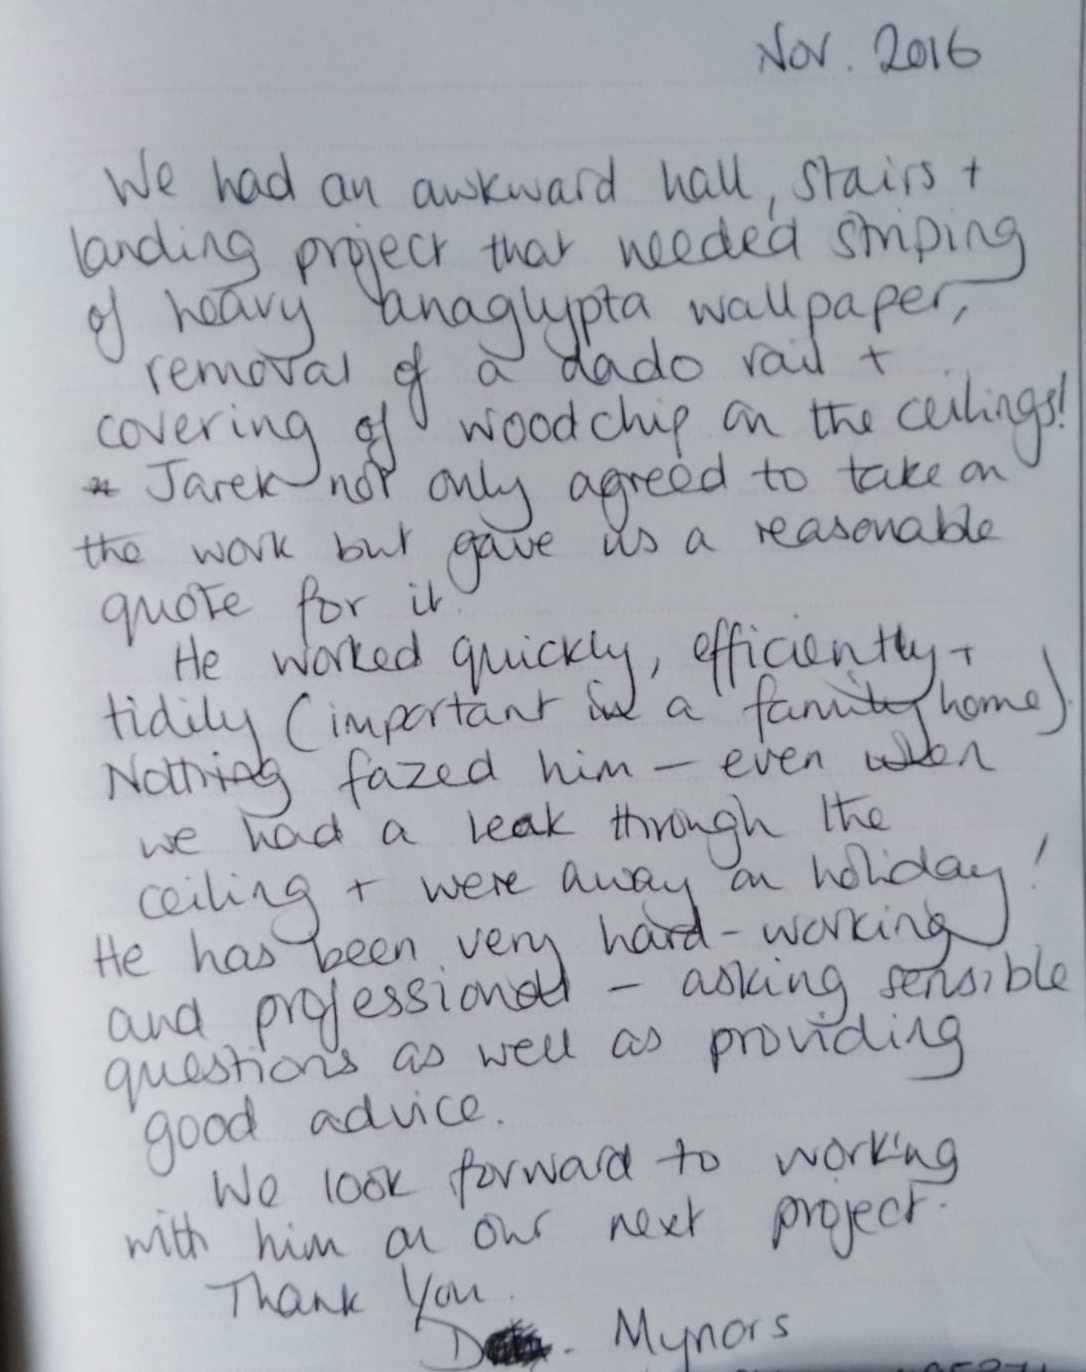 Nov. 2016
We had an awkward hall, stairs +
landing project that needed striping
of heavy anaglypta wallpaper,
removal of a dado rail +
covering of woodchip on the ceilings!
Jarek not only agreed to take on
the work but gave us a reasonable
quote for it.
He worked quickly, efficiently +
tidily (important in a family home).
Nothing fazed him – even when
we had a leak through the
ceiling + were away on holiday!
He has been very hard-working
and professional – asking sensible
questions as well as providing
good advice.
We look forward to working
with him on our next project.
Thank You.
D . Mynors